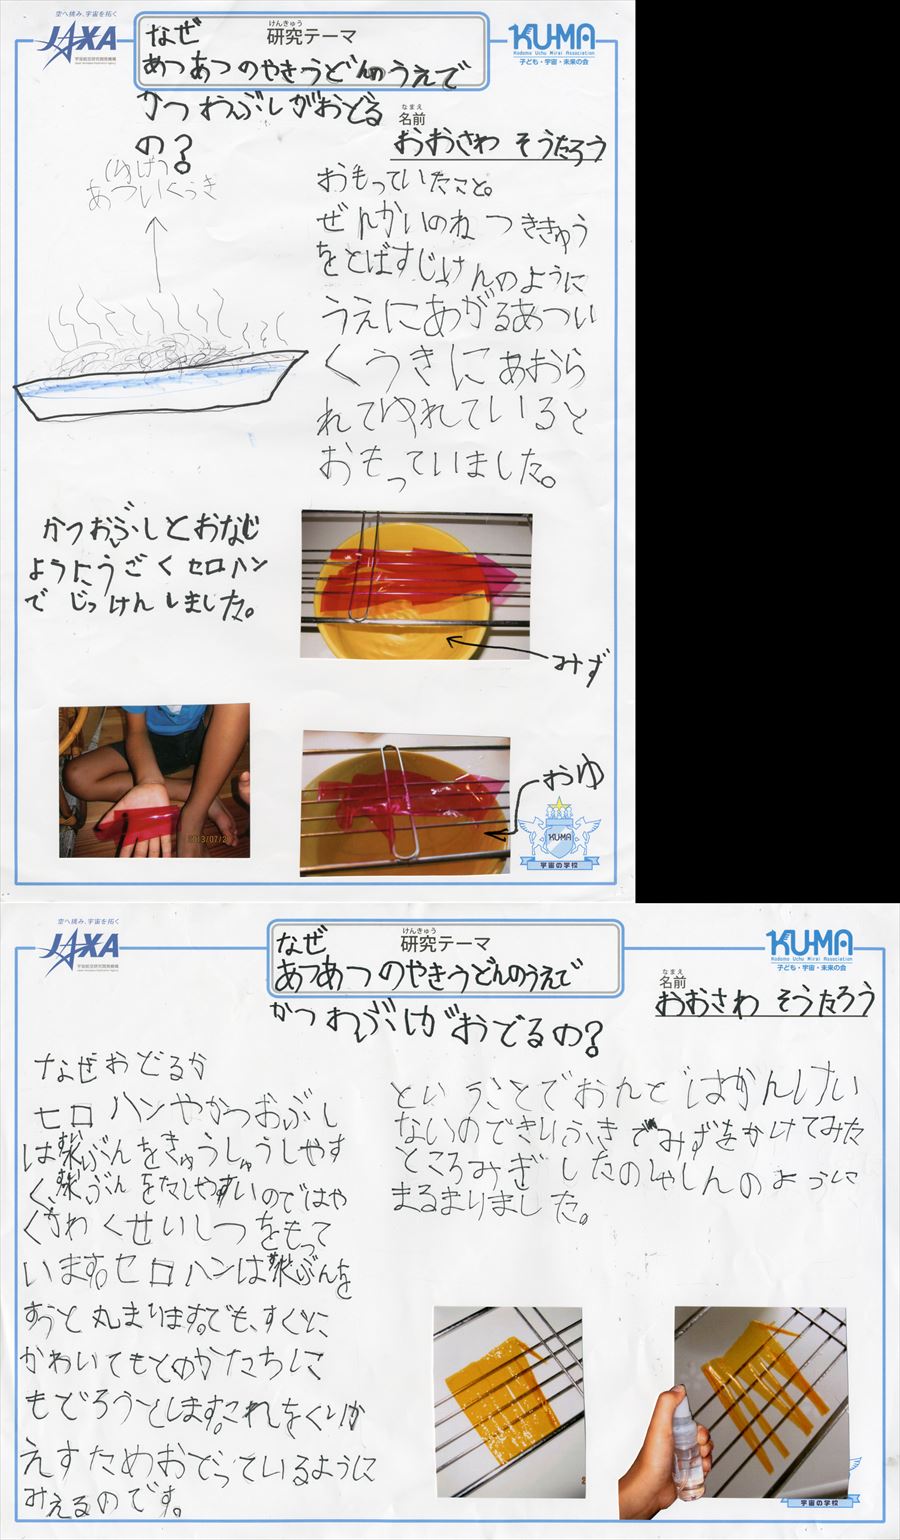 空へ挑み、宇宙を拓く
JAXA
宇宙航空研究開発機構
Japan Aerospace Exploration Agency
けんきゅう
研究テーマ
なぜ
あつあつのやきうどんのうえで
かつおぶしがおどる
の?
KU-MA
Kodomo Uchu Mirai Association
子ども・宇宙・未来の会
なまえ
名前
おおさわ そうたろう
(ゆげ)
あついくうき
おもっていたこと。
ぜんかいのねつききゅう
をとばすじっけんのように
うえにあがるあつい
くうきにあおら
れてゆれていると
おもっていました。
かつおぶしとおなじ
ようにうごくセロハン
でじっけんしました。
みず
おゆ
KU-MA
宇宙の学校
空へ挑み、宇宙を拓く
JAXA
宇宙航空研究開発機構
Japan Aerospace Exploration Agency
けんきゅう
研究テーマ
なぜ
あつあつのやきうどんのうえで
かつおぶしがおどるの?
KU-MA
Kodomo Uchu Mirai Association
子ども・宇宙・未来の会
なまえ
名前
おおさわ そうたろう
なぜおどるか
セロハンやかつおぶし
は水ぶんをきゅうしゅうしやす
く、水ぶんをだしやすいのではや
くかわくせいしつをもって
います。セロハンは水ぶんを
すうと丸まります。でも、すぐに
かわいてもとのかたちに
もどろうとします。これをくりか
えすためおどっているように
みえるのです。
ということでおんどはかんけい
ないのできりふきでみずをかけてみた
ところみぎしたのしゃしんのように
まるまりました。
宇宙の学校